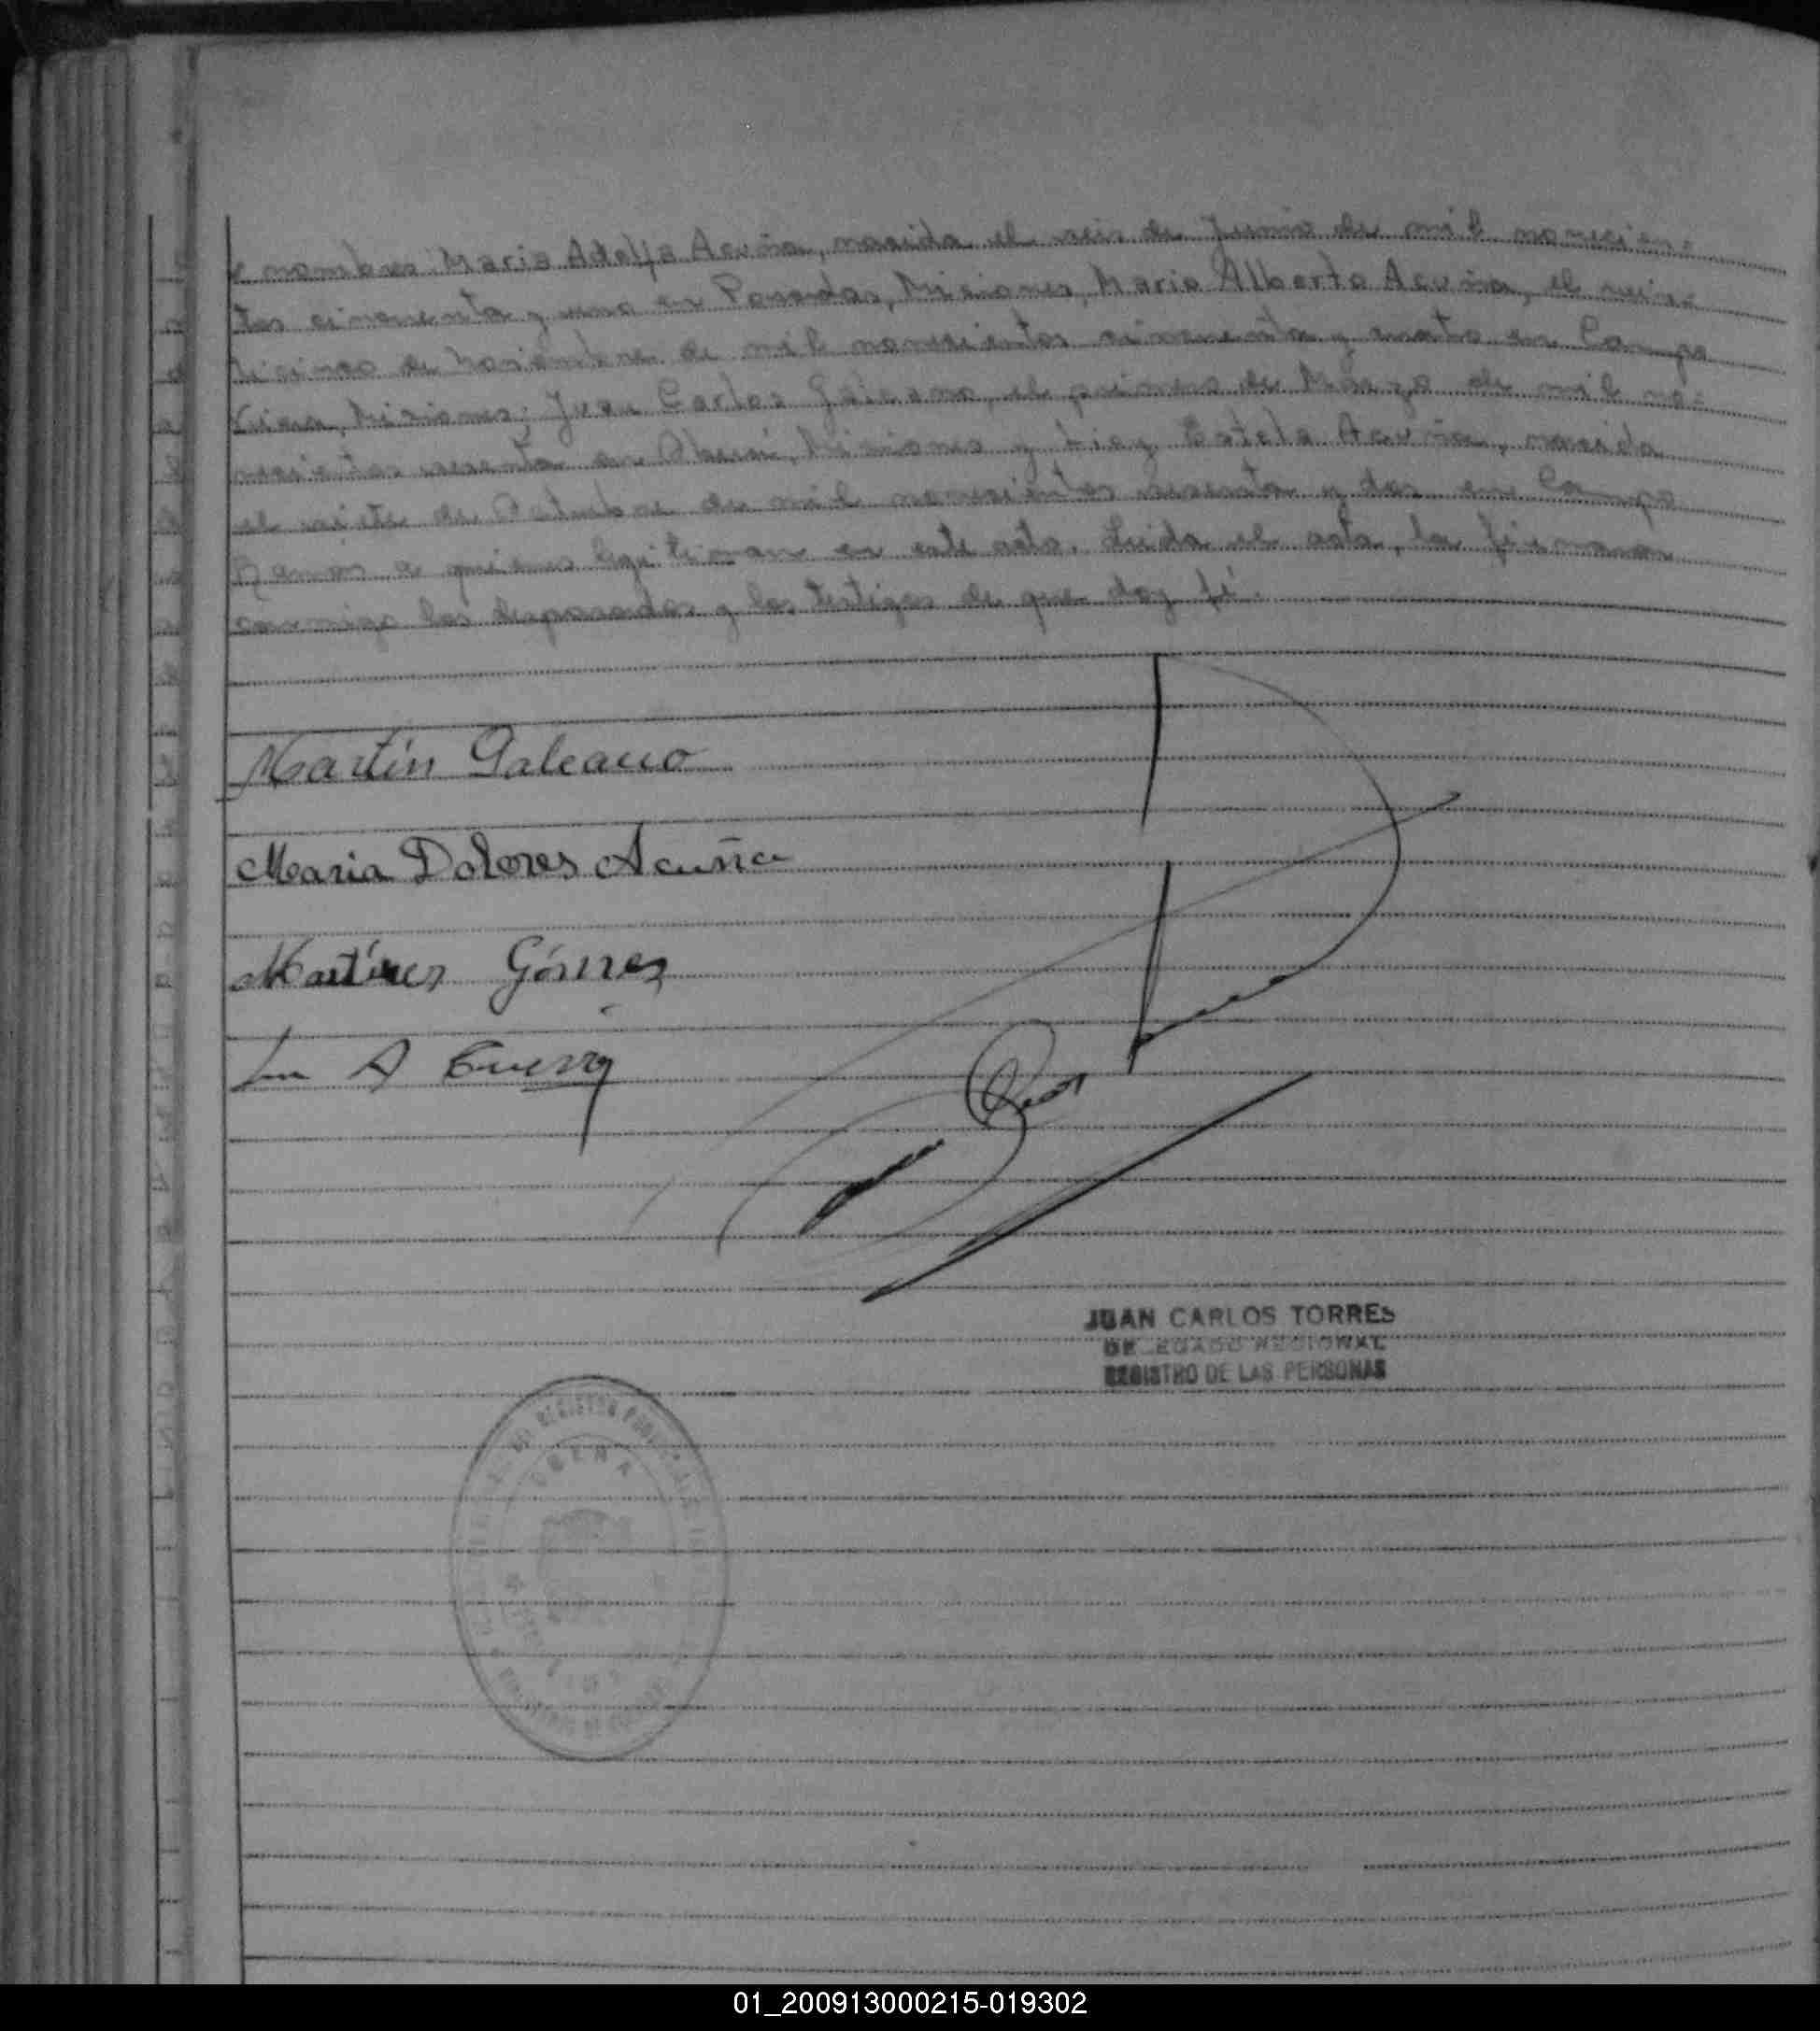 nombres Maria Adolfa Acuña, nacida el seis de Junio de mil novecien-
tos cincuenta y uno en Posadas, Misiones, Mario Alberto Acuña, el vein-
ticinco de Noviembre de mil novecientos cincuenta y cuatro en Campo
Viera, Misiones; Juan Carlos Galeano, el primero de Marzo de mil no-
vecientos sesenta en Oberá, Misiones y Estela Acuña, nacida
el siete de Octubre de mil novecientos sesenta y dos en Campo
Ramón a quienes legitiman en este acto. Leida el acta, la firmaron
conmigo los desposados y los testigos de que doy fé.
Martín Galeano
Maria Dolores Acuña
Martínez Gómez
A
JUAN CARLOS TORRES
DELEGADO REGIONAL
REGISTRO DE LAS PERSONAS
REGISTRO
OBERA
01_200913000215-019302